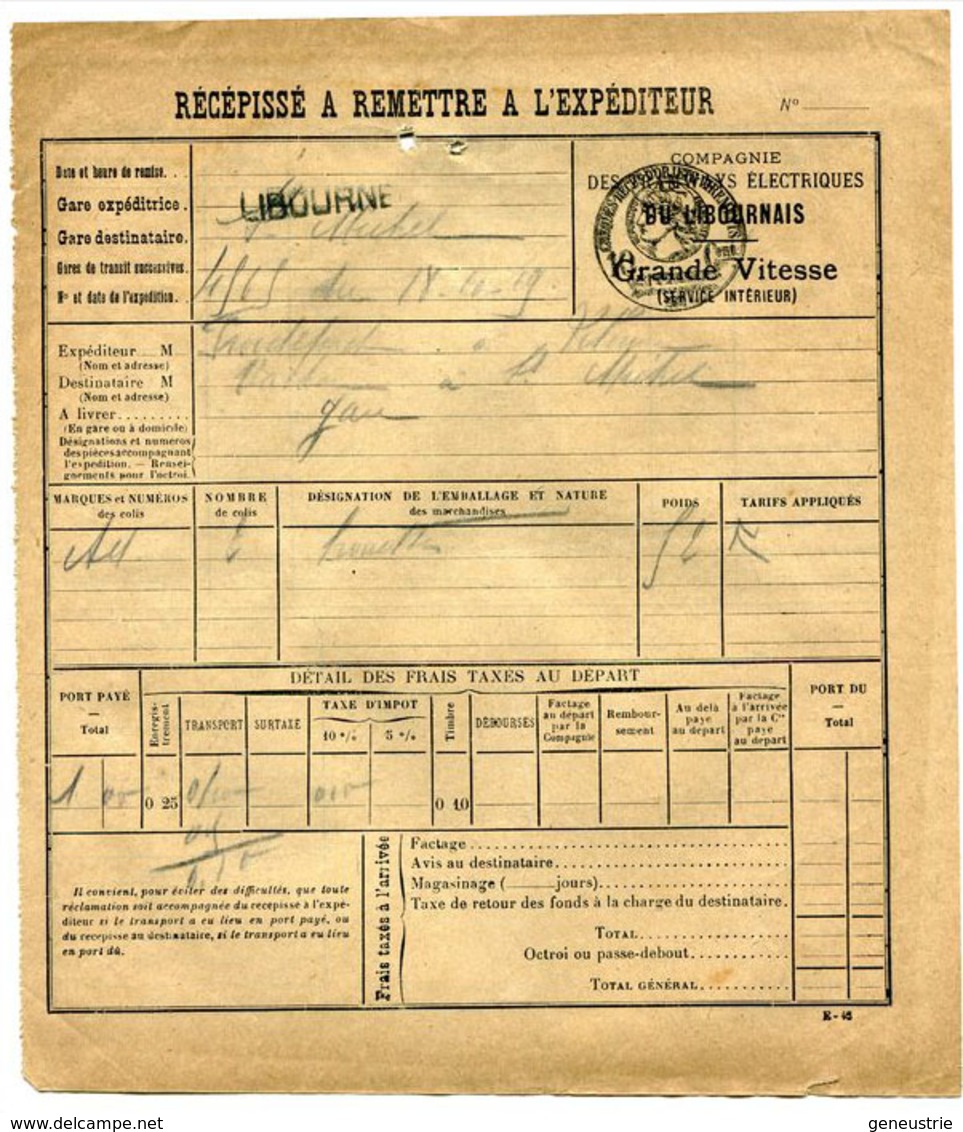 RÉCÉPISSÉ A REMETTRE A L'EXPÉDITEUR
Nº
Date et heure de remise. . .
Gare expéditrice.
LIBOURNE
Gare destinataire.
St Michel
Gares de transit successives.
Nº et date de l'expédition.
du 18
COMPAGNIE
DES TRAMWAYS ÉLECTRIQUES
DU LIBOURNAIS
Grande Vitesse
(SERVICE INTÉRIEUR)
Expéditeur M
(Nom et adresse)
Destinataire M
a St Michel
(Nom et adresse)
A livrer.........
gare
(En gare ou à domicile)
Désignations et numeros
des pièces accompagnant
l'expedition. — Rensei-
gnements pour l'octroi.
MARQUES et NUMÉROS
des colis
NOMBRE
de colis
DÉSIGNATION DE L'EMBALLAGE ET NATURE
des marchandises
POIDS
TARIFS APPLIQUÉS
DÉTAIL DES FRAIS TAXÉS AU DÉPART
PORT PAYÉ
—
Total
Enregis-
trement
TRANSPORT
SURTAXE
TAXE D'IMPOT
10 %
5 %
Timbre
DÉBOURSÉS
Factage
au départ
par la
Compagnie
Rembour-
sement
Au delà
paye
au départ
Factage
à l'arrivée
par la Cie
paye
au départ
PORT DU
—
Total
1 00
0 25
0 10
Il convient, pour éviter des difficultés, que toute
réclamation soit accompagnée du recepisse à l'expé-
diteur si le transport a eu lieu en port payé, ou
du recepisse au destinataire, si le transport a eu lieu
en port dû.
Frais taxés à l'arrivée
Factage
Avis au destinataire
Magasinage (____jours)
Taxe de retour des fonds à la charge du destinataire.
TOTAL
Octroi ou passe-debout
TOTAL GÉNÉRAL
E-46
delcampe.net
geneustrie